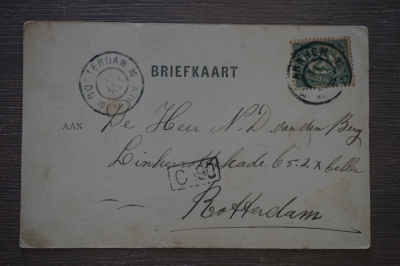 BRIEFKAART
ROTTERDAM
ARNHEM
AAN De Heer N. D. van den Berg
Linkerrottekade 65. 2 x bellen
C 90
Rotterdam